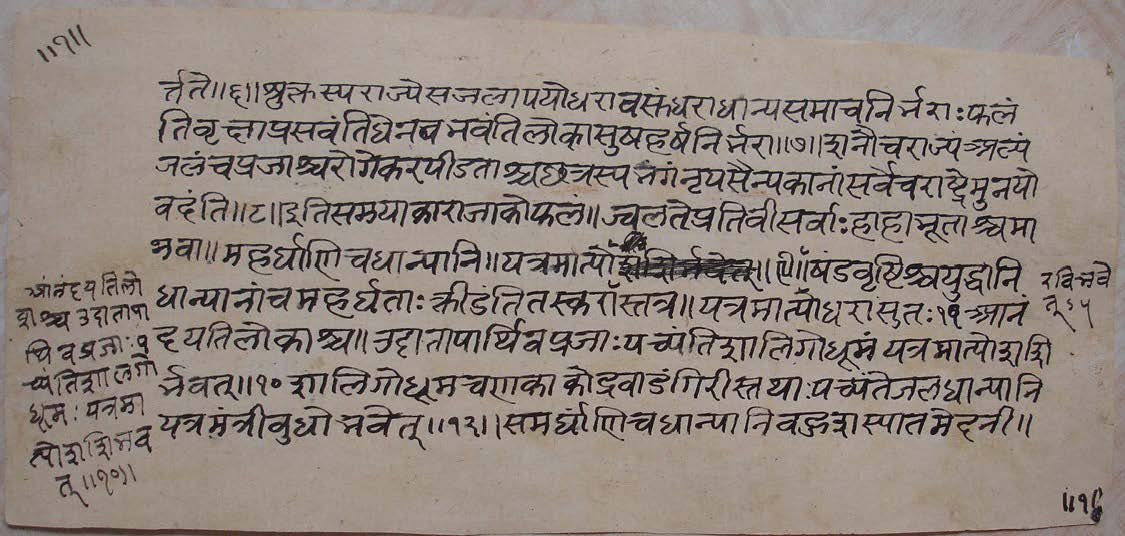 ॥१॥
र्त्तते॥६॥शुक्रस्य राज्ये सजला पयोधरा वसंधरा धान्यसमाच निर्भराः फलं
तिवृक्षाप्रसवंतिधेनव भवंतिलोका सुषहर्षनिर्भरा॥७॥शनौचराज्यं अल्पं
जलंचप्रजाश्चरोगेकरपीडताश्चछत्रस्यभंगंनृपसैन्यकानांसर्वेचराष्ट्रेमुनयो
वदंति॥८॥इतिसमयाकाराजाकोफलं॥ज्वलतेप्रतिवीसर्वाःहाहाभूताश्चमा
नवा॥महर्घाणिचधान्यानि॥यत्रमात्यो ॥९॥षंडवृष्टिश्चयुद्धानि
धान्यानांचमहर्घताः क्रीडंतितस्करास्तत्र॥यत्रमात्योधरासुतः११आनं
दयतिलोकाश्च॥उदातापार्थिवप्रजाः पच्यंतिशालिगोधूमं यत्रमात्योशशि
र्भवेत्॥१०शालिगोधूमचणकाकोद्रवाडंगिरीस्तथाः पच्यंतेजलधान्यानि
यत्रमंत्रीबुधोभवेत्॥१२॥समर्घाणिचधान्यानिवहुशस्पातमेदनी॥
आनंदयतिलो
काश्च उदातापा
र्थिवप्रजाः
च्यंतिशालगो
धूमः यत्रमा
त्योशशिभवे
त्॥१०॥
रविभवे
त्
॥१